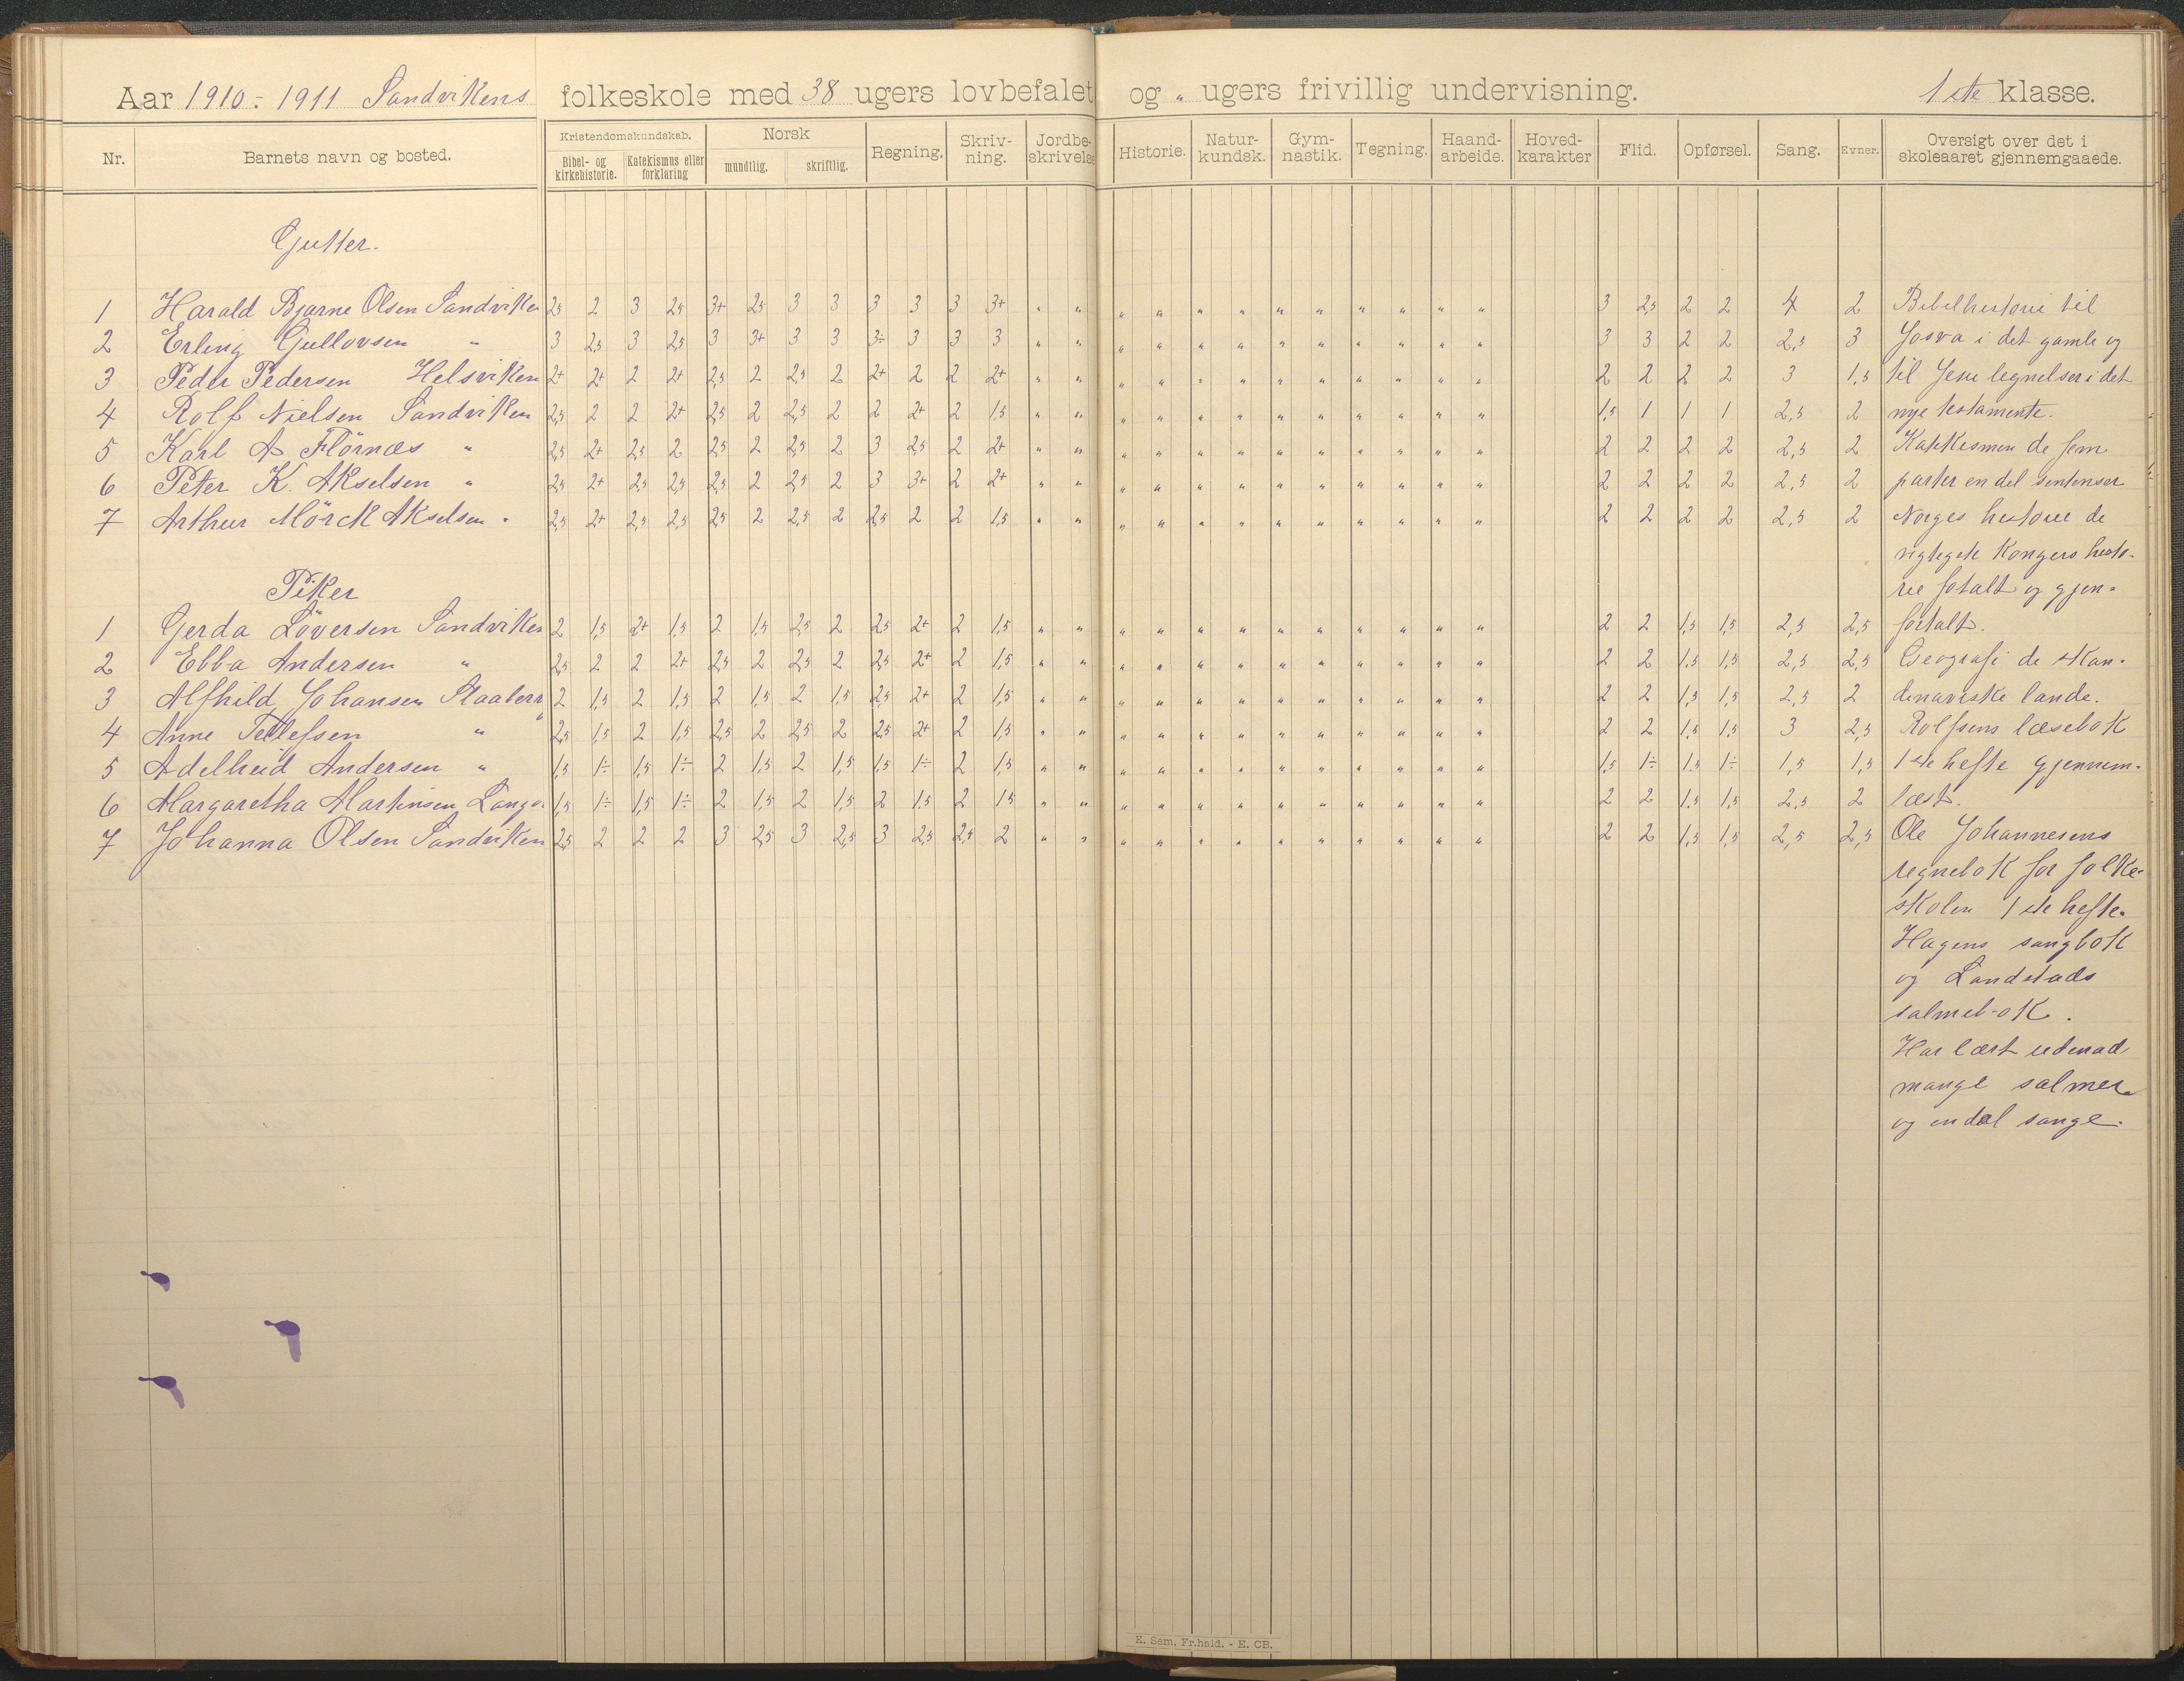 Aar 1910-1911 Sandvikens folkeskole med 38 ugers lovbefalet og " ugers frivillig undervisning. 1ste klasse.
Nr. Barnets navn og bosted. Kristendomskundskab. Bibel- og kirkehistorie. Katekismus eller forklaring Norsk mundtlig. skriftlig. Regning. Skriv-ning. Jordbe-skrivelse Historie. Natur-kundsk. Gym-nastik. Tegning. Haand-arbeide. Hoved-karakter Flid. Opførsel. Sang. Evner. Oversigt over det i skoleaaret gjennemgaaede.
Gutter.
1 Harald Bjarne Olsen Sandviken 2,5 2 3 2,5 3+ 2,5 3 3 3 3 3 3+ " " " " " " " " " " " " 3 2,5 2 2 4 2 Bibelhistorie til
2 Erling Gullovsen " 3 2,5 3 2,5 3 3+ 3 3 3÷ 3 3 3 " " " " " " " " " " " " 3 3 2 2 2,5 3 Josva i det gamle og
3 Peder Pedersen Helsviken 2+ 2+ 2 2+ 2,5 2 2,5 2 2+ 2 2 2+ " " " " " " " " " " " " 2 2 2 2 3 1,5 til Jesu legnelser i det
4 Rolf Nielsen Sandviken 2,5 2 2 2+ 2,5 2 2,5 2 2 2+ 2 1,5 " " " " " " " " " " " " 1,5 1 1 1 2,5 2 nye testamente.
5 Karl A Flörnæs " 2,5 2+ 2,5 2 2,5 2 2,5 2 3 2,5 2 2+ " " " " " " " " " " " " 2 2 2 2 2,5 2 Katekismen de fem
6 Peter K. Akselsen " 2,5 2+ 2,5 2,5 2,5 2 2,5 2 3 3+ 2 2+ " " " " " " " " " " " " 2 2 2 2 2,5 2 parter en del sentenser
7 Arthur Mörck Akselsen " 2,5 2+ 2,5 2,5 2,5 2 2,5 2 2,5 2 2 1,5 " " " " " " " " " " " " 2 2 2 2 2,5 2 Norges historie de
vigtigste Kongers histo-
Piker rie fotalt og gjen-
1 Gerda Löversen Sandviken 2 1,5 2+ 1,5 2 1,5 2,5 2 2,5 2+ 2 1,5 " " " " " " " " " " " " 2 2 1,5 1,5 2,5 2,5 fortalt.
2 Ebba Andersen " 2,5 2 2 2+ 2,5 2 2,5 2 2,5 2+ 2 1,5 " " " " " " " " " " " " 2 2 1,5 1,5 2,5 2,5 Geografi de skan-
3 Alfhild Johansen 2 1,5 2 1,5 2 1,5 2 1,5 2,5 2+ 2 1,5 " " " " " " " " " " " " 2 2 1,5 1,5 2,5 2 dinaviske lande.
4 Anne Tellefsen " 2,5 1,5 2 1,5 2,5 2 2,5 2 2,5 2+ 2 1,5 " " " " " " " " " " " " 2 2 1,5 1,5 3 2,5 Rolfsens læsebok
5 Adelheid Andersen " 1,5 1÷ 1,5 1÷ 2 1,5 2 1,5 1,5 1÷ 2 1,5 " " " " " " " " " " " " 1,5 1÷ 1,5 1÷ 1,5 1,5 1ste hefte gjennem-
6 Margaretha Martinsen Lange. 1,5 1÷ 1,5 1÷ 2 1,5 2 1,5 2 1,5 2 1,5 " " " " " " " " " " " " 2 2 1,5 1,5 2,5 2 læst.
7 Johanna Olsen Sandviken 2,5 2 2 2 3 2,5 3 2,5 3 2,5 2,5 2 " " " " " " " " " " " " 2 2 1,5 1,5 2,5 2,5 Ole Johannesens
regnebok for folke-
skolen 1ste hefte.
Hagens sangbok
og Landstads
salmebok.
Har lært udenad
mange salmer
og endel sange.
E. Sem, Fr.hald. - E. CB.